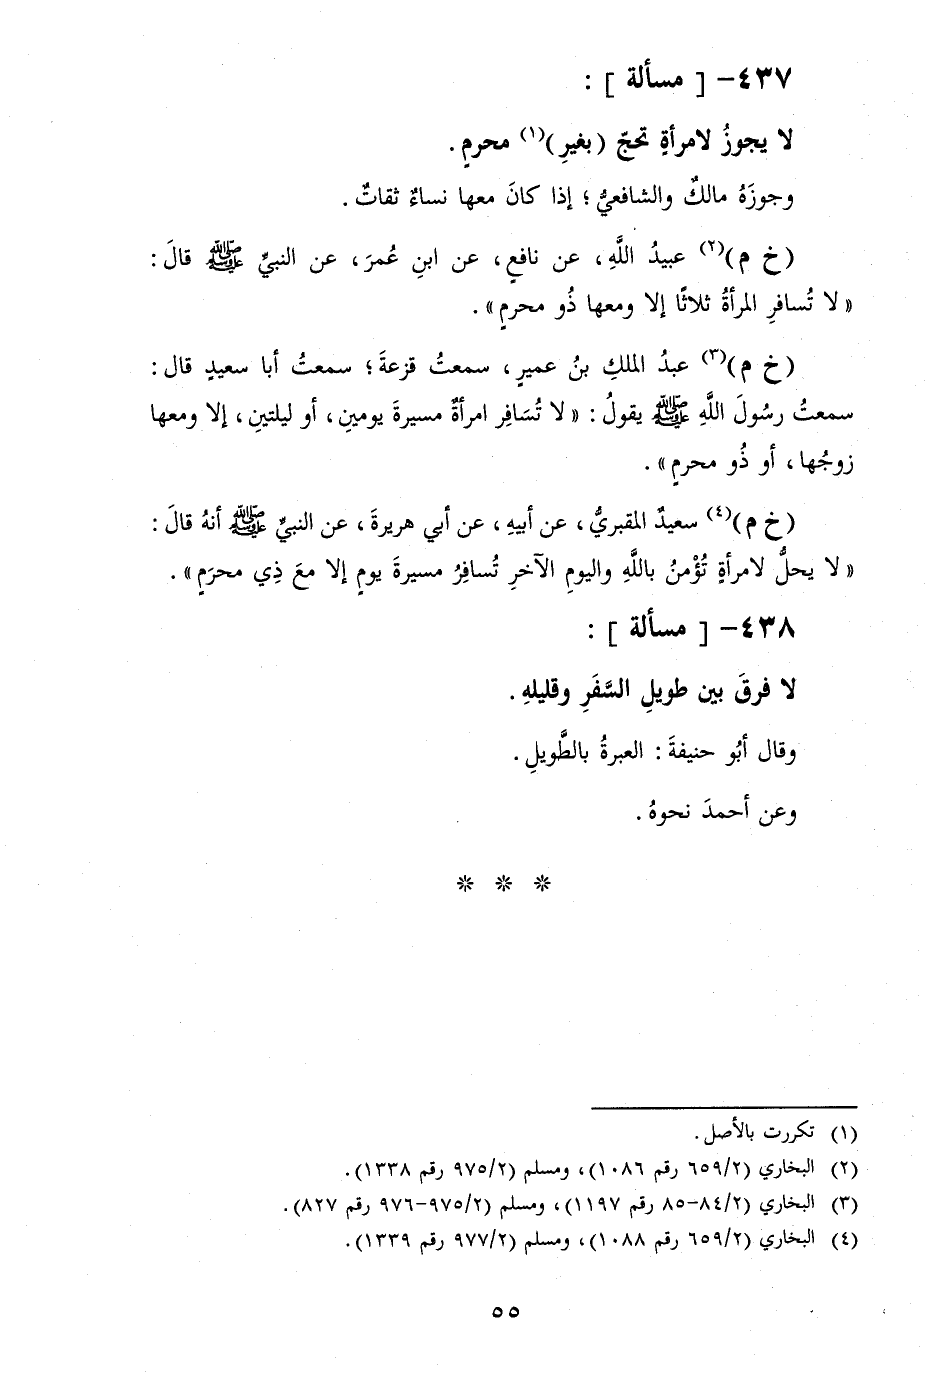 ٤٣٧- [ مسألة ] :
لا يجوزُ لامرأةٍ تحجّ (بغيرِ)(١) محرمٍ .
وجوزَهُ مالكٌ والشافعيُّ ؛ إذا كانَ معها نساءٌ ثقاتٌ .
(خ م)(٢) عبيدُ اللَّهِ، عن نافعٍ، عن ابنِ عُمرَ، عن النبيِّ ﷺ قالَ :
« لا تُسافرِ المرأةُ ثلاثًا إلا ومعها ذُو محرمٍ» .
(خ م)(٣) عبدُ الملكِ بنُ عميرٍ، سمعتُ قزعةَ؛ سمعتُ أبا سعيدٍ قال :
سمعتُ رسُولَ اللَّهِ ﷺ يقولُ : « لا تُسَافِر امرأةٌ مسيرةَ يومينِ، أو ليلتينِ، إلا ومعها
زوجُها، أو ذُو محرمٍ» .
(خ م)(٤) سعيدٌ المقبريُّ، عن أبيهِ، عن أبي هريرةَ، عن النبيِّ ﷺ أنهُ قالَ :
« لا يحلُّ لامرأةٍ تُؤْمنُ باللَّهِ واليومِ الآخرِ تُسافِرُ مسيرةَ يومٍ إلا معَ ذِي محرَمٍ» .
٤٣٨- [ مسألة ] :
لا فرقَ بين طويلِ السَّفَرِ وقليلهِ .
وقال أبُو حنيفةَ : العبرةُ بالطَّويلِ .
وعن أحمدَ نحوهُ .
* * *
(١) تكررت بالأصل .
(٢) البخاري (٦٥٩/٢ رقم ١٠٨٦)، ومسلم (٩٧٥/٢ رقم ١٣٣٨).
(٣) البخاري (٨٤/٢-٨٥ رقم ١١٩٧)، ومسلم (٩٧٥/٢-٩٧٦ رقم ٨٢٧).
(٤) البخاري (٦٥٩/٢ رقم ١٠٨٨)، ومسلم (٩٧٧/٢ رقم ١٣٣٩).
٥٥